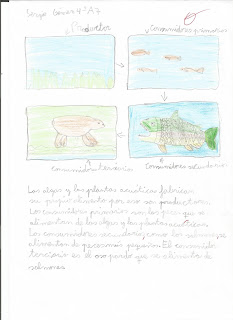 Sergio Gómez 4ºA 7
Productores
Consumidores primarios
Consumidores terciarios
Consumidores secundarios
Las algas y las plantas acuaticas fabrican
su propio alimento por eso son productores.
Los consumidores primarios son los peces que se
alimentan de las algas y las plantas acuaticas.
Los consumidores secundarios como los salmones, se
alimentan de peces más pequeños. El consumidor
terciario es el oso pardo que se alimenta de
salmones.